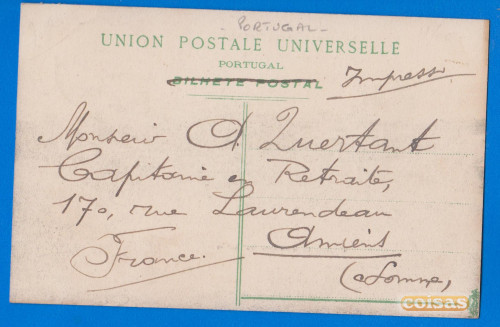 - PORTUGAL -
UNION POSTALE UNIVERSELLE
PORTUGAL
BILHETE POSTAL Impresso
Monsieur A Quertant
Capitaine en Retraite,
170, rue Laurendeau
Amiens
France. (Somme,
coisas